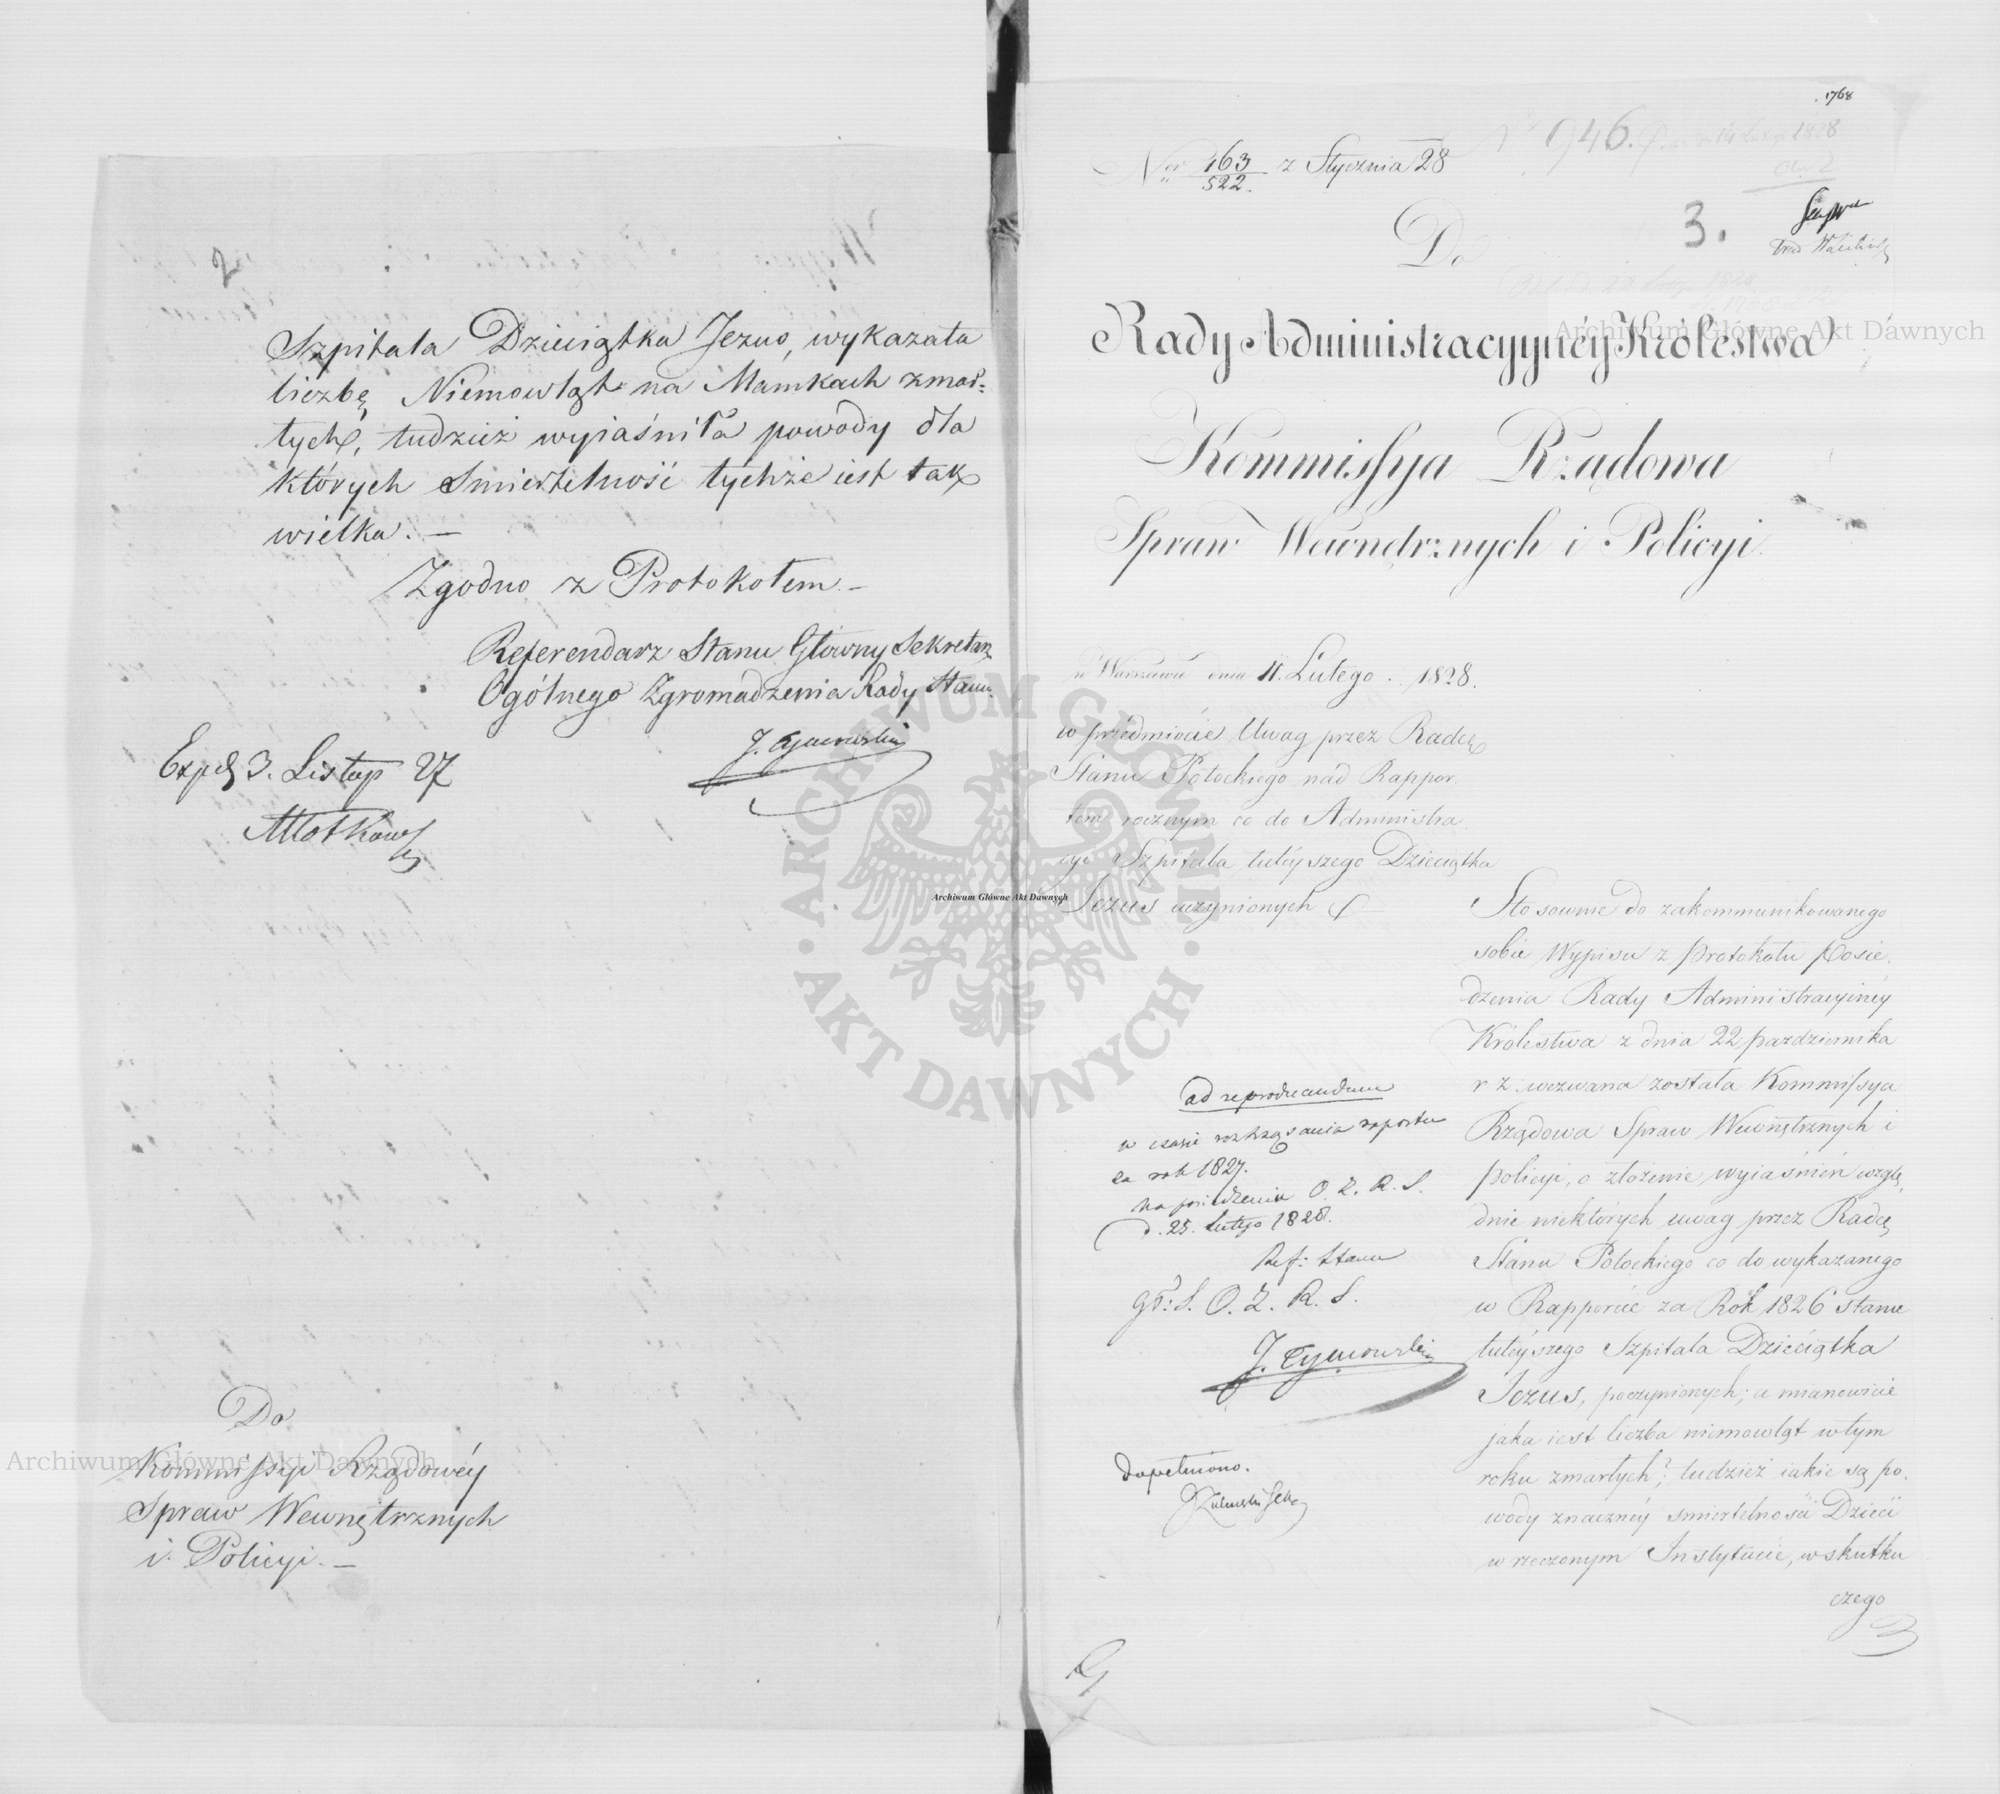 2
Szpitala Dzieciątka Jezus, wykazała
liczbę Niemowląt na Mamkach zmar=
łych, tudzież wyiaśniła powody dla
których Śmiertelność tychże iest tak
wielka. —
Zgodno z Protokołem. —
Referendarz Stanu Główny Sekretarz
Ogólnego Zgromadzenia Rady Stanu.
J. Tymowski
Exped 3. Listop 27
Młotkows
Do
Kommissyi Rządowéy
Spraw Wewnętrznych
i Policyi. —
1768
Nr 163/522. z Stycznia 28
946. 1828
3.
Do
Rady Administracyynéy Królestwa
Kommissya Rządowa
Spraw Wewnętrznych i Policyi.
w Warszawie dnia 11. Lutego. 1828.
w przedmiocie Uwag przez Radcę
Stanu Potockiego nad Rappor
tem rocznym co do Administra
cyi Szpitala tuteyszego Dzieciątka
Jezus uczynionych
Stosownie do zakommunikowanego
sobie Wypisu z Protokołu Posie
dzenia Rady Administracyinéy
Królestwa z dnia 22 pazdziernika
r z. wezwana została Kommissya
Rządowa Spraw Wewnętrznych i
Policyi, o złożenie wyiaśnień wzglę,
dnie niektórych uwag przez Radcę
Stanu Potockiego co do wykazanego
w Rapporcie za Rok 1826 stanu
tutéyszego Szpitala Dzieciątka
Jezus, poczynionych; a mianowicie
jaka iest liczba niemowląt w tym
roku zmarłych?, tudzież iakie są po,
wody znacznéy smiertelności Dzieci
w rzeczonym Instytucie, w skutku
czego
ad reproducendum
w czasie roztrząsania raportu
za rok 1827.
na posiedzeniu O. Z. R. S.
d. 25. Lutego 1828.
Ref: Stanu
Gł: S. O. Z. R. S.
J. Tymowski
Dopełniono.
Archiwum Główne Akt Dawnych
Archiwum Główne Akt Dawnych
Archiwum Główne Akt Dawnych
ARCHIWUM GŁÓWNE
AKT DAWNYCH